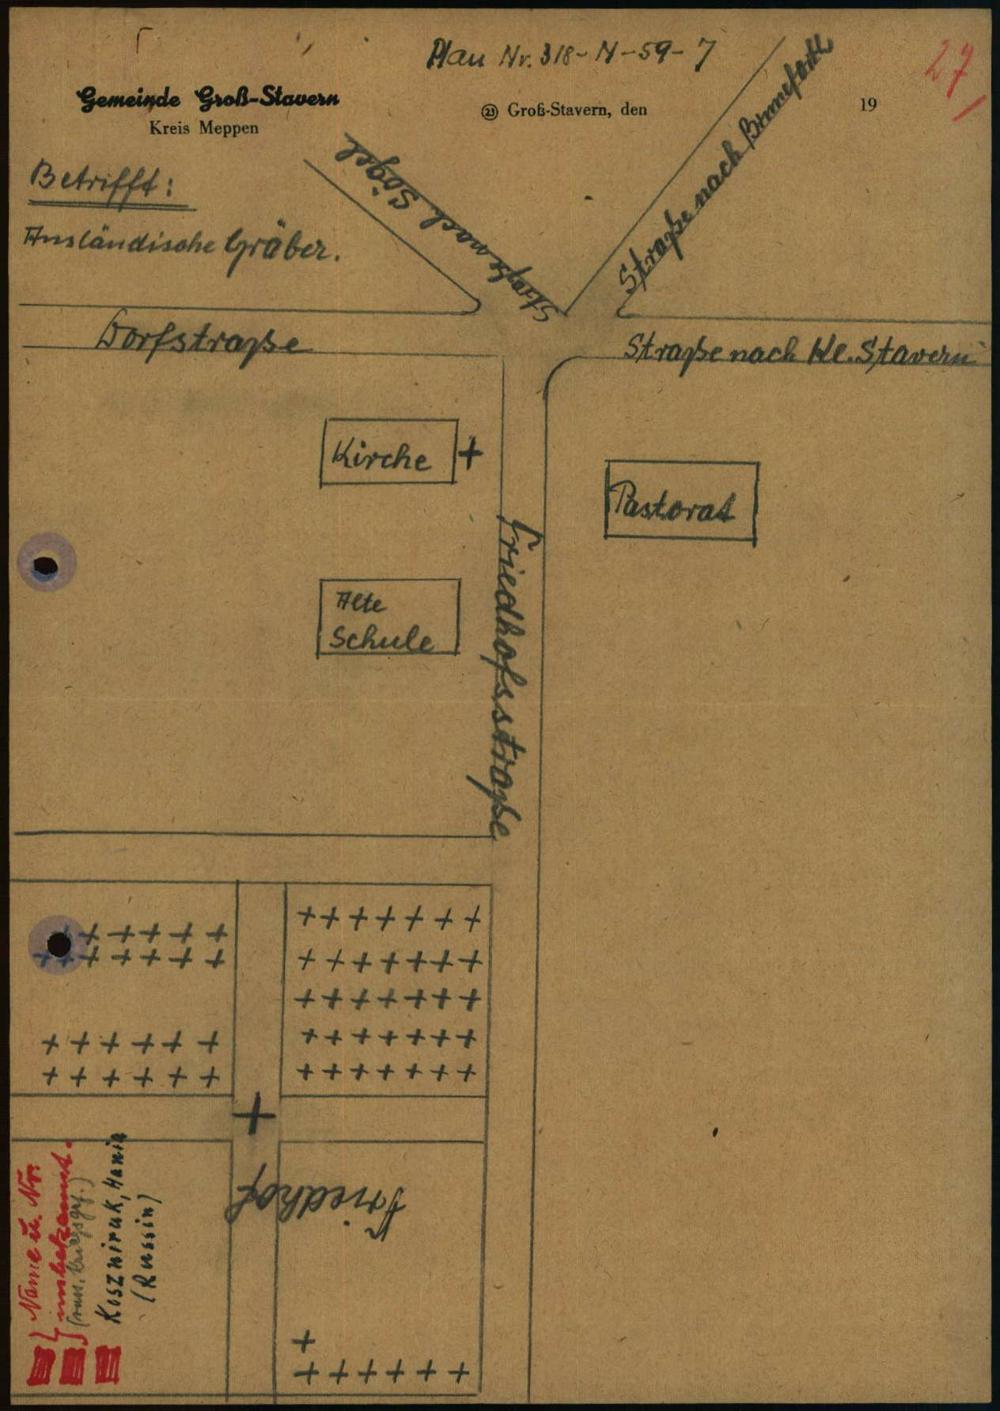 Plan Nr. 318-N-59-7
27
Gemeinde Groß-Stavern
Kreis Meppen
(23) Groß-Stavern, den 19
Betrifft:
Ausländische Gräber.
Straße nach Sögel
Straße nach
Dorfstraße
Straße nach Kl. Stavern
Kirche
Pastorat
Alte
Schule
Friedhofsstraße
Friedhof
Name u. Nr.
unbekannt.
(russ. Kriegsgf.)
Koszniruk, Hania
(Russin)